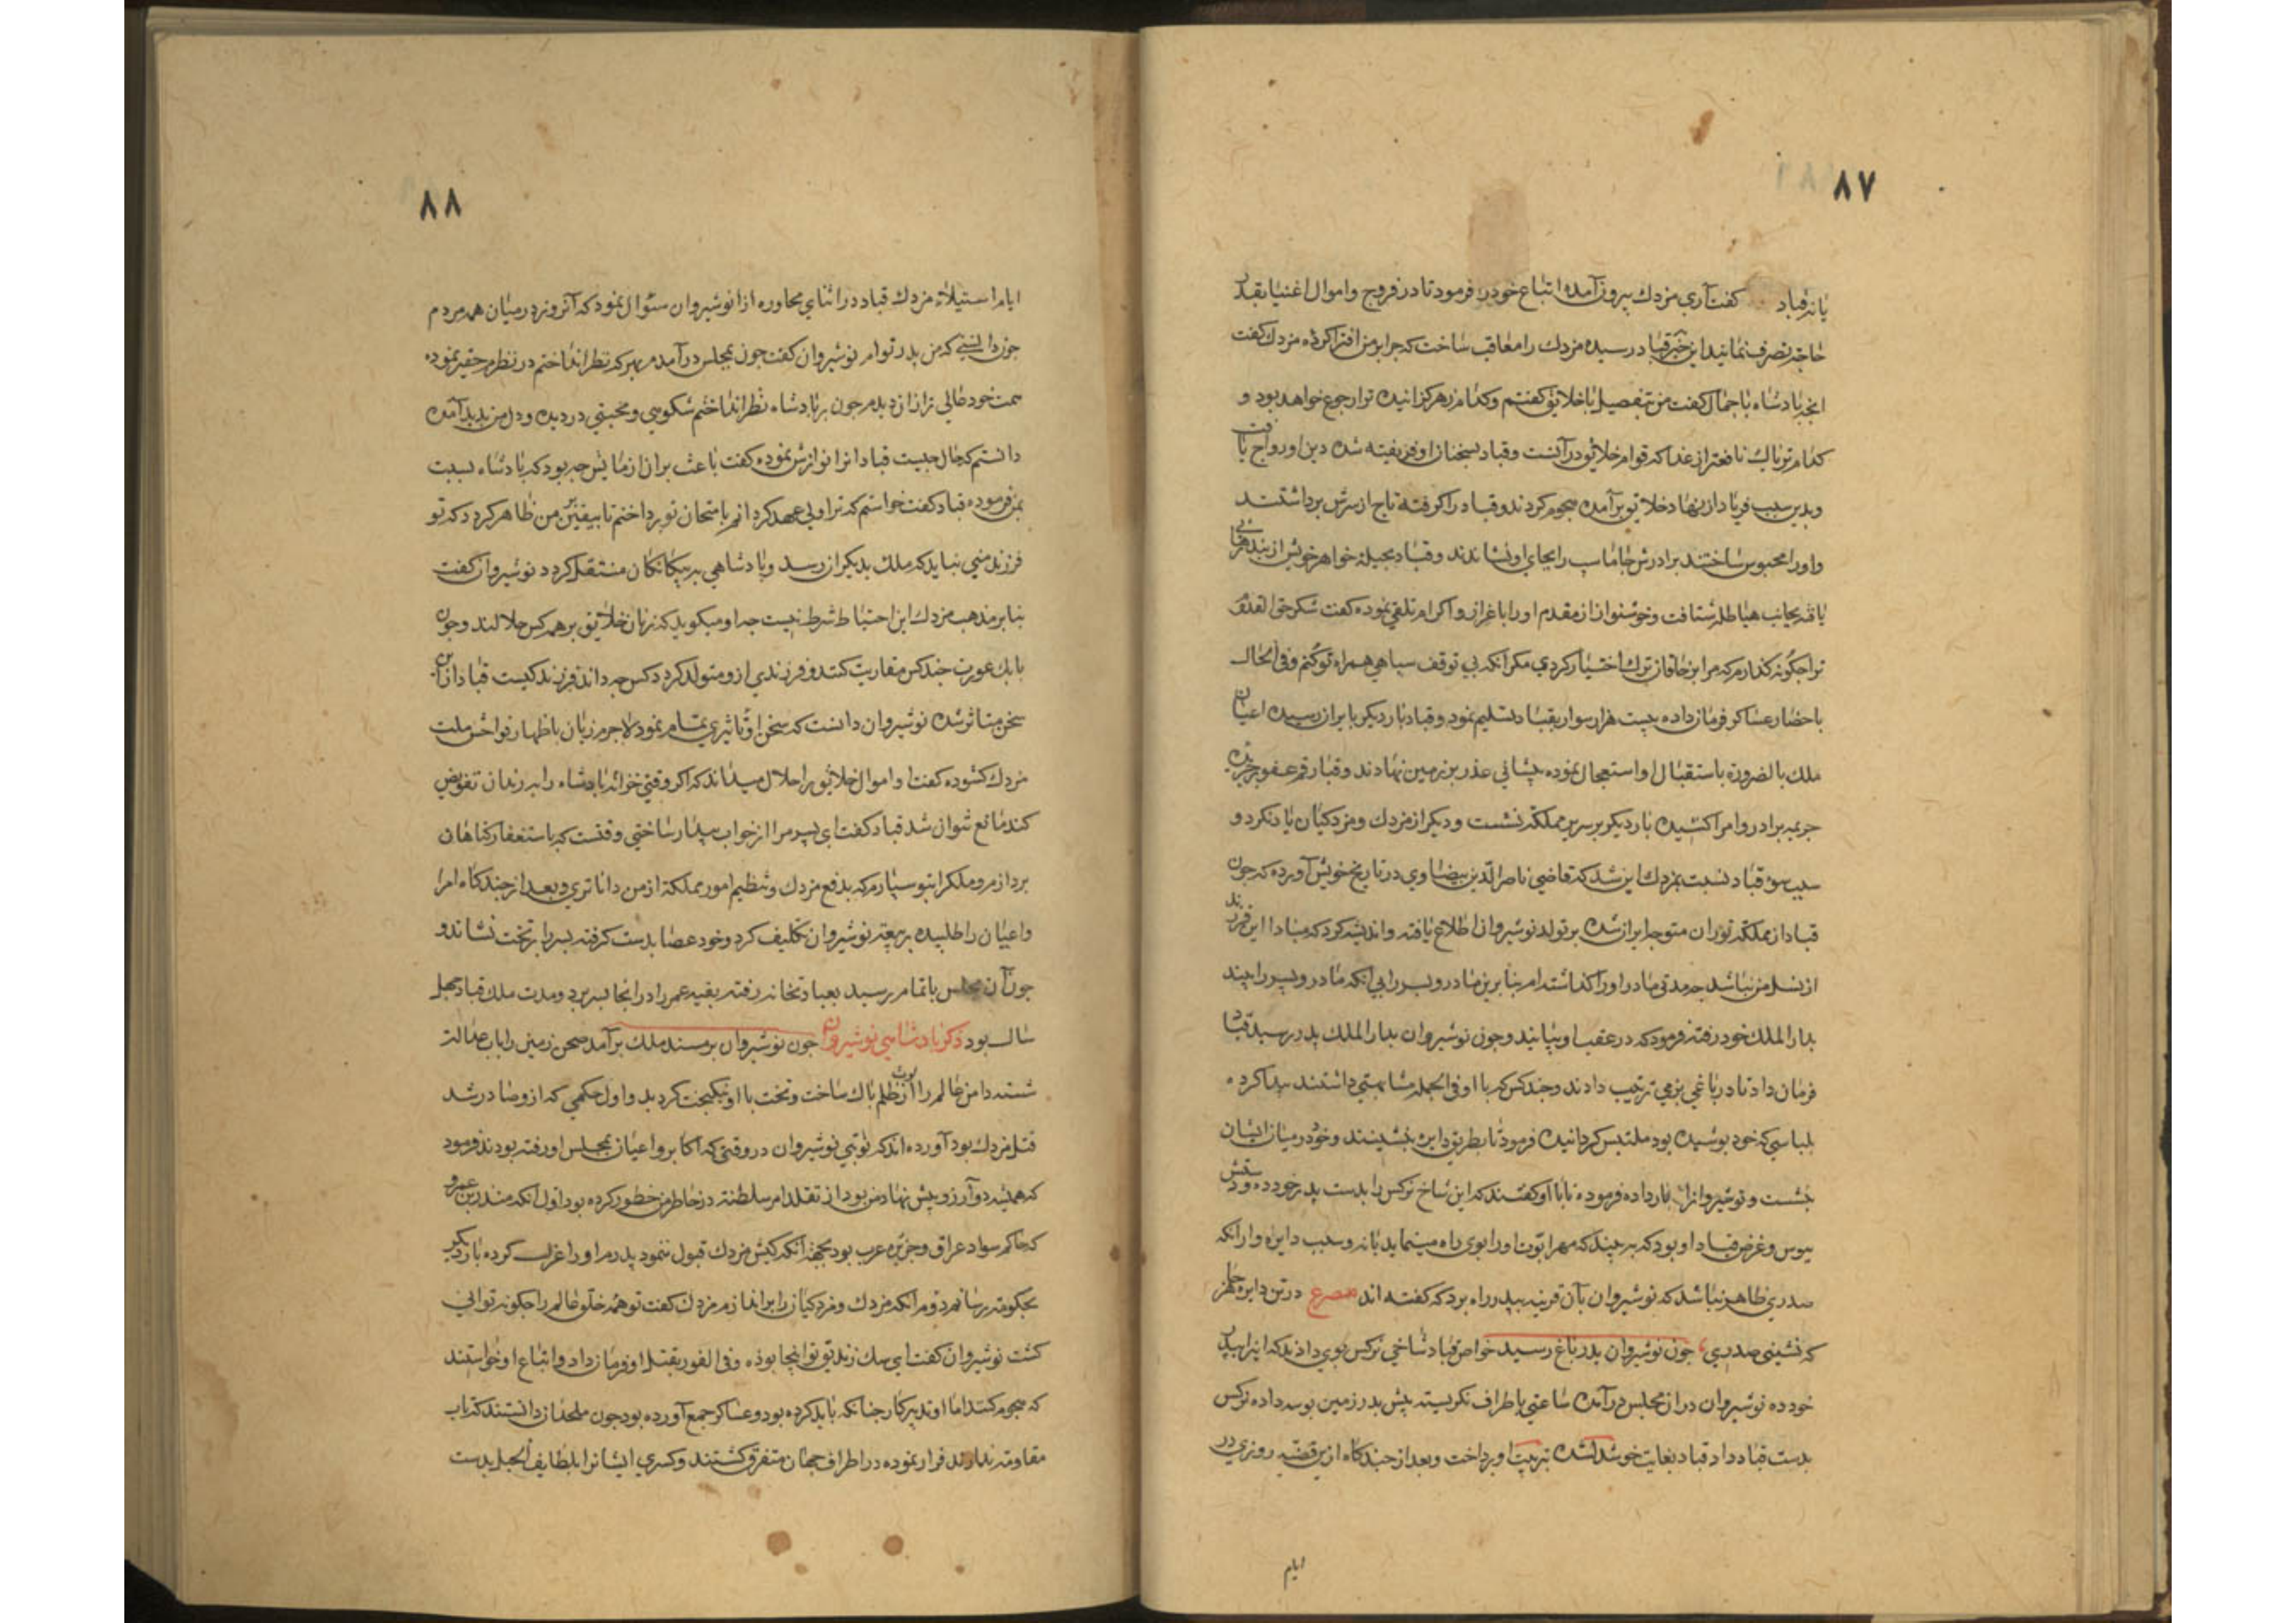 ۸۷
یا نه قباد گفت آری مزدك بیرون آمده اتباع خودرا فرمود تا در فروج و اموال اغنیا بقدر
حاجة تصرف نمایند این خبر بقباد رسیده مزدك را معاقب ساخت که چرا بر من افترا کرده مزدك گفت
انچه پادشاه باجمال گفت من بتفصیل با خلایق گفتم و کدام زهر گزانیده ترا رجوع خواهد بود و
کدام تریاك نافعتر از غذا که قوام خلایق در آنست و قباد بسخنان او فریفته شده دین او رواج یافت
و بدین سبب فریاد از نهاد خلایق بر آمده هجوم کردند و قباد را گرفته تاج از سرش برداشتند
و اورا محبوس ساختند برادرش جاماسب را بجای او نشاندند و قباد بحیلهٔ خواهر خویش از بند رهایی
یافته بجانب هیاطله شتافت و خوشنواز از مقدم اورا باعزاز و اکرام تلقی نموده گفت شکر حق
ترا چگونه گذارم که مرا بر خاقان ترك اختیار کردی مگر آنکه بی توقف سپاهی همراه تو کنم و فی الحال
باحضار عساکر فرمان داده بیست هزار سوار بقباد تسلیم نمود و قباد بار دیگر بایران رسیده اعیان
ملك بالضرورة باستقبال او استعجال نموده پیشانی عذر بر زمین نهادند و قباد رقم عفو بر جریده
جریمه برادر و امرا کشیده بار دیگر بر سریر مملکة نشست و دیگر از مزدك و مزدکیان یاد نکرد و
سبب سوء قباد نسبت بمزدك این شد که قاضی ناصر الدین بیضاوی در تاریخ خویش آورده که چون
قباد از مملکة توران متوجه ایران شده بر تولد نوشیروان اطلاع یافته و اندیشه کرد که مبادا این فرزند
از نسل من نباشد چه مدتی مادر اورا گذاشته ام بنا برین مادر و پسر را بی آنکه مادر و پسر را بیند
بدار الملك خود رفته فرمود که در عقب او بیایند و چون نوشیروان بدار الملك پدر رسید قباد
فرمان داد تا در باغی بزمی ترتیب دادند و چند کس که با او فی الجمله مشابهتی داشتند پیدا کرده
بلباسی که خود پوشیده بود ملتبس گردانیده فرمود تا بطریق دایره بنشینند و خود در میان ایشان
بنشست و نوشیروانرا بار داده فرموده تا با او گفتند که این شاخ نرگس را بدست پدر خود ده و دستش
ببوس و غرض قباد او بود که به بیند که مهر ابوت اورا بوی راه مینماید یا نه و سبب دایره وار آنکه
صدری ظاهر نباشد که نوشیروان بآن قرینه بپدر راه برد که گفته اند مصرع درین دایره هر جا
که نشینی صدری چون نوشیروان بدر باغ رسید خواص قباد شاخی نرگس بوی دادند که اینرا بپدر
خود ده نوشیروان در آن مجلس در آمده ساعتی باطراف نگریسته پیش پدر زمین بوسه داده نرگس
بدست قباد داد قباد بغایت خوشدل شده بتربیت او پرداخت و بعد از چندگاه ازین قضیه روزی در
ایام
۸۸
ایام استیلاء مزدك قباد در اثنای محاوره از انوشیروان سئوال نمود که آنروز در میان همه مردم
چون دانستی که من پدر توام نوشیروان گفت چون بمجلس در آمدم بهر که نظر انداختم در نظرم حقیر نموده
سمت خود خالی تر از ان دیدم چون بر پادشاه نظر انداختم شکوهی و محبتی در دیده و دل من پدید آمده
دانستم که حال چیست قباد انرا نوازش نموده گفت باعث بران ازمایش چه بود که پادشاه نسبت
بمن فرموده قباد گفت خواستم که ترا ولی عهد گردانم بامتحان تو پرداختم تا بیقین بر من ظاهر گردد که تو
فرزند منی نباید که ملك بدیگران رسد و پادشاهی به بیگانگان منتقل گردد نوشیروان گفت
بنابر مذهب مزدك این احتیاط شرط نیست چه او میگوید که زنان خلایق بر همه کس حلالند و چون
با یك عورت چند کس مقاربت کنند و فرزندی ازو متولد گردد کس چه داند فرزند کیست قباد ازین
سخن متاثر شده نوشیروان دانست که سخن او تاثیری تمام نمود لاجرم زبان باظهار فواحش ملت
مزدك گشوده گفت او اموال خلایق را حلال میداند که اگر وقتی خزانه پادشاه را برندان تفویض
کند مانع نتوان شد قباد گفت ای پسر مرا از خواب بیدار ساختی وقتست که باستغفار گناهان
پردازم و ملك را بتو سپارم که بدفع مزدك و تنظیم امور مملکة از من داناتری و بعد از چندگاه امرا
و اعیان را طلبیده به بیعة نوشیروان تکلیف کرد و خود عصا بدست گرفته پسر را بر تخت نشاند و
چون آن مجلس باتمام رسید بعبادتخانه رفته بقیه عمر را در انجا بسر برد و مدت ملك قباد چهل
سال بود ذکر پادشاهی نوشیروان چون نوشیروان بر مسند ملك بر آمد صحن زمین را باب عدالت
شسته دامن عالم را از لوث ظلم پاك ساخت و تخت با او نیکبخت گردید و اول حکمی که ازو صادر شد
قتل مزدك بود آورده اند که نوبتی نوشیروان در وقتی که اکابر و اعیان بمجلس او رفته بودند فرمود
که همیشه دو آرزو پیش نهاد من بود از تقلد امر سلطنة در خاطر من خطور کرده بود اول آنکه منذر بن عمرو
که حاکم سواد عراق و جزیره عرب بود بجهة آنکه کیش مزدك قبول ننمود پدرم اورا عزل کرده بار دیگر
بحکومة رسانم دوم آنکه مزدك و مزدکیان را براندازم مزدك گفت تو همه خلق عالم را چگونه توانی
کشت نوشیروان گفت ای سك زندیق تو اینجا بوده و فی الفور بقتل او فرمان داد و اتباع او خواستند
که هجوم کنند اما او تدبیر کار چنانکه باید کرده بود و عساکر جمع آورده بود چون ملحدان دانستند که تاب
مقاومة ندارند فرار نموده در اطراف جهان متفرق گشتند و کسری ایشانرا بلطایف الحیل بدست